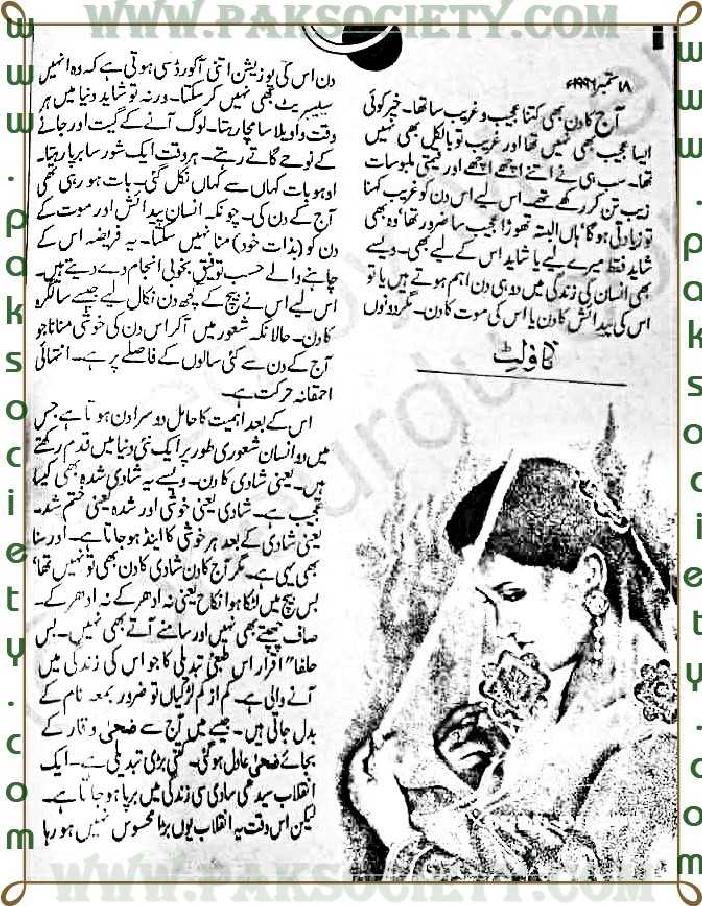 WWW.PAKSOCIETY.COM
۱۸ ستمبر ۱۹۹۶ء
آج کا دن بھی کتنا عجیب و غریب سا تھا۔ خیر کوئی
ایسا عجیب بھی نہیں تھا اور غریب تو بالکل بھی نہیں
تھا۔ سب ہی نے اتنے اچھے اچھے اور قیمتی ملبوسات
زیب تن کر رکھے تھے۔ اس لیے اس دن کو غریب کہنا
تو زیادتی ہو گا، ہاں البتہ تھوڑا عجیب سا ضرور تھا، وہ بھی
شاید فقط میرے لیے یا شاید اس کے لیے بھی۔ ویسے
بھی انسان کی زندگی میں دو ہی دن اہم ہوتے ہیں یا تو
اس کی پیدائش کا دن یا اس کی موت کا دن۔ مگر دونوں
ناولٹ
دن اس کی پوزیشن اتنی آکورڈ سی ہوتی ہے کہ وہ انہیں
سیلیبریٹ بھی نہیں کر سکتا۔ ورنہ تو شاید دنیا میں ہر
وقت واویلا سا مچا رہتا۔ لوگ آنے کے گیت اور جانے
کے نوحے گاتے رہتے۔ ہر وقت ایک شور سا برپا رہتا۔
اوہو بات کہاں سے کہاں نکل گئی۔ بات ہو رہی تھی
آج کے دن کی۔ چونکہ انسان پیدائش اور موت کے
دن کو (بذات خود) منا نہیں سکتا۔ یہ فریضہ اس کے
چاہنے والے حسب توفیق بخوبی انجام دے دیتے ہیں۔
اس لیے اس نے بیچ کے کچھ دن نکال لیے جیسے سالگرہ
کا دن۔ حالانکہ شعور میں آ کر اس دن کی خوشی منانا جو
آج کے دن سے کئی سالوں کے فاصلے پر ہے۔ انتہائی
احمقانہ حرکت ہے۔
اس کے بعد اہمیت کا حامل دوسرا دن ہوتا ہے جس
میں وہ انسان شعوری طور پر ایک نئی دنیا میں قدم رکھتے
ہیں۔ یعنی شادی کا دن۔ ویسے یہ شادی شدہ بھی کیسا
عجیب ہے۔ شادی یعنی خوشی اور شدہ یعنی ختم شد۔
یعنی شادی کے بعد ہر خوشی کا اینڈ ہو جاتا ہے۔ اور سنا
بھی یہی ہے۔ مگر آج کا دن شادی کا دن بھی تو نہیں تھا،
بس بیچ میں لٹکا ہوا نکاح یعنی نہ ادھر کے نہ ادھر کے۔
صاف چھپتے بھی نہیں اور سامنے آتے بھی نہیں۔ بس
حلفا" اقرار اس طبعی تبدیلی کا جو اس کی زندگی میں
آنے والی ہے۔ کم از کم لڑکیاں تو ضرور بمعہ نام کے
بدل جاتی ہیں۔ جیسے میں آج سے ضحیٰ وقار کے
بجائے ضحیٰ عادل ہو گئی۔ کتنی بڑی تبدیلی ہے۔ ایک
انقلاب سیدھی سادی سی زندگی میں برپا ہو جاتا ہے۔
لیکن اس وقت یہ انقلاب یوں بڑا محسوس نہیں ہو رہا
www.paksociety.com
www.paksociety.com
WWW.PAKSOCIETY.COM